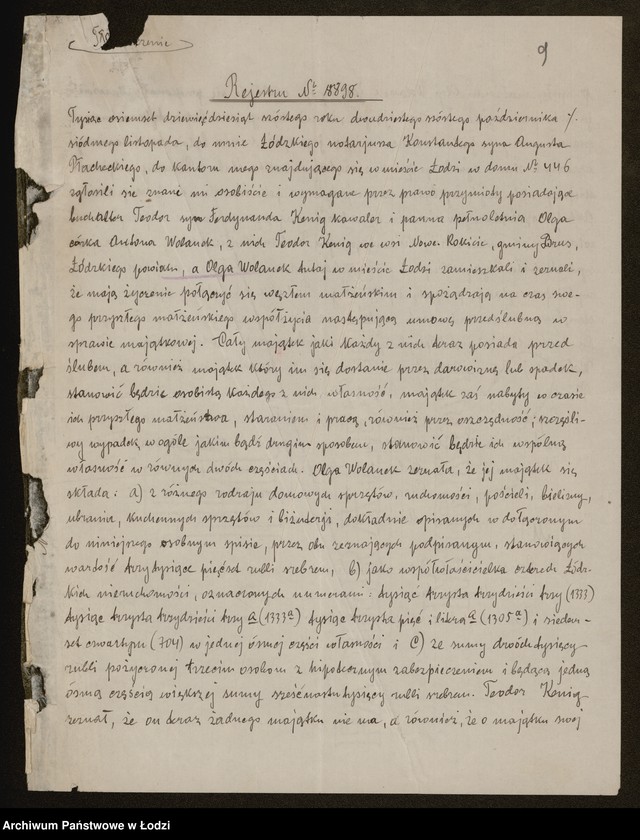 9
Rejestru № 18898.
Tysiąc osiemset dziewięćdziesiąt szóstego roku dwudziestego szóstego października /.
siódmego listopada, do mnie Łódzkiego notarjusza Konstantego syna Augusta
Płacheckiego, do kantoru mego znajdującego się w mieście Łodzi w domu № 446
zgłosili się znane mi osobiście i wymagane przez prawo przymioty posiadające
buchalter Teodor syn Ferdynanda Kenig kawaler i panna pełnoletnia Olga
córka Antona Wolanek, z nich Teodor Kenig we wsi Nowe Rokicie, gminy Brus,
Łódzkiego powiatu, a Olga Wolanek tutaj w mieście Łodzi zamieszkali i zeznali,
że mają życzenie połączyć się węzłem małżeńskim i sporządzają na czas swe-
go przyszłego małżeńskiego współżycia następującą umowę przedślubną w
sprawie majątkowej. Cały majątek jaki każdy z nich teraz posiada przed
ślubem, a również majątek który im się dostanie przez darowiznę lub spadek,
stanowić będzie osobistą każdego z nich własność, majątek zaś nabyty w czasie
ich przyszłego małżeństwa, staraniem i pracą, również przez oszczędność, szczęśli-
wy wypadek, w ogóle jakim bądź drugim sposobem, stanowić będzie ich wspólną
własność w równych dwóch częściach. Olga Wolanek zeznała, że jej majątek się
składa: a) z różnego rodzaju domowych sprzętów, ruchomości, pościeli, bielizny,
ubrania, kuchennych sprzętów i biżuterji, dokładnie opisanych w dołączonym
do niniejszego osobnym spisie, przez obu zeznających podpisanym, stanowiących
wartość trzy tysiące pięćset rubli srebrem, b) jako współwłaścicielka czterech Łódz-
kich nieruchomości, oznaczonych numerami: tysiąc trzysta trzydzieści trzy (1333)
tysiąc trzysta trzydzieści trzy a (1333a) tysiąc trzysta pięć i litera a (1305a) i siedem-
set czwartym (704) w jednej ósmej części własności i C) ze sumy dwóch tysięcy
rubli pożyczonej trzecim osobom z hipotecznym zabezpieczeniem i będącą jedną
ósmą częścią większej sumy szesnastu tysięcy rubli srebrem. Teodor Kenig
zeznał, że on teraz żadnego majątku nie ma, a również, że o majątku swej
Archiwum Państwowe w Łodzi